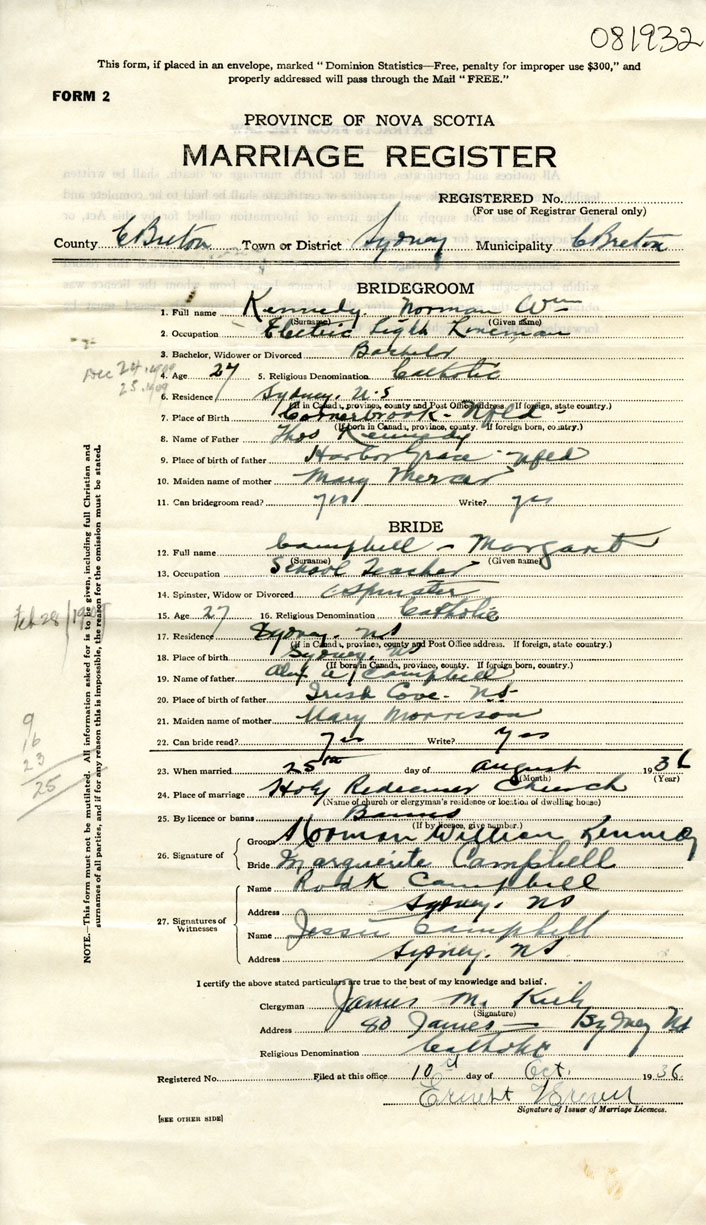 081932
This form, if placed in an envelope, marked "Dominion Statistics—Free, penalty for improper use $300," and
properly addressed will pass through the Mail "FREE."
FORM 2
PROVINCE OF NOVA SCOTIA
MARRIAGE REGISTER
REGISTERED No.
(For use of Registrar General only)
County C Breton Town or District Sydney Municipality C Breton
BRIDEGROOM
1. Full name Kennedy. Norman Wm
(Surname) (Given name)
2. Occupation Electric Light Lineman
3. Bachelor, Widower or Divorced Bachelor
Dec 24, 1909
4. Age 27 5. Religious Denomination Catholic
25.1909
6. Residence Sydney. N.S
(If in Canada, province, county and Post Office address. If foreign, state country.)
7. Place of Birth Cornerbrook - Nfld
(If born in Canada, province, county. If foreign born, country.)
8. Name of Father Thos Kennedy
9. Place of birth of father Harbor Grace - Nfld
10. Maiden name of mother Mary Mercer
11. Can bridegroom read? yes Write? yes
BRIDE
12. Full name Campbell - Margaret
(Surname) (Given name)
13. Occupation School Teacher
14. Spinster, Widow or Divorced Spinster
15. Age 27 16. Religious Denomination Catholic
Feb 28/
17. Residence Sydney. NS
(If in Canada, province, county and Post Office address. If foreign, state country.)
18. Place of birth Sydney. NS
(If born in Canada, province, county. If foreign born, country.)
19. Name of father Alex A Campbell
20. Place of birth of father Irish Cove. NS.
21. Maiden name of mother Mary Morrison
22. Can bride read? yes Write? yes
9
16
23
25
23. When married 25th day of August 1936
(Month) (Year)
24. Place of marriage Holy Redeemer Church
(Name of church or clergyman's residence or location of dwelling house)
25. By licence or banns Banns
(If by licence, give number.)
26. Signature of Groom Norman William Kennedy
Bride Marguerite Campbell
27. Signatures of Witnesses Name Campbell
Address Sydney. NS
Name Jessie Campbell
Address Sydney. NS
I certify the above stated particulars are true to the best of my knowledge and belief.
Clergyman James M. Kiely
(Signature)
Address 80 James Sydney NS
Religious Denomination Catholic
Registered No. Filed at this office 10 day of Oct. 1936.
Ernest
Signature of Issuer of Marriage Licences.
[SEE OTHER SIDE]
NOTE.—This form must not be mutilated. All information asked for is to be given, including full Christian and
surnames of all parties, and if for any reason this is impossible, the reason for the omission must be stated.